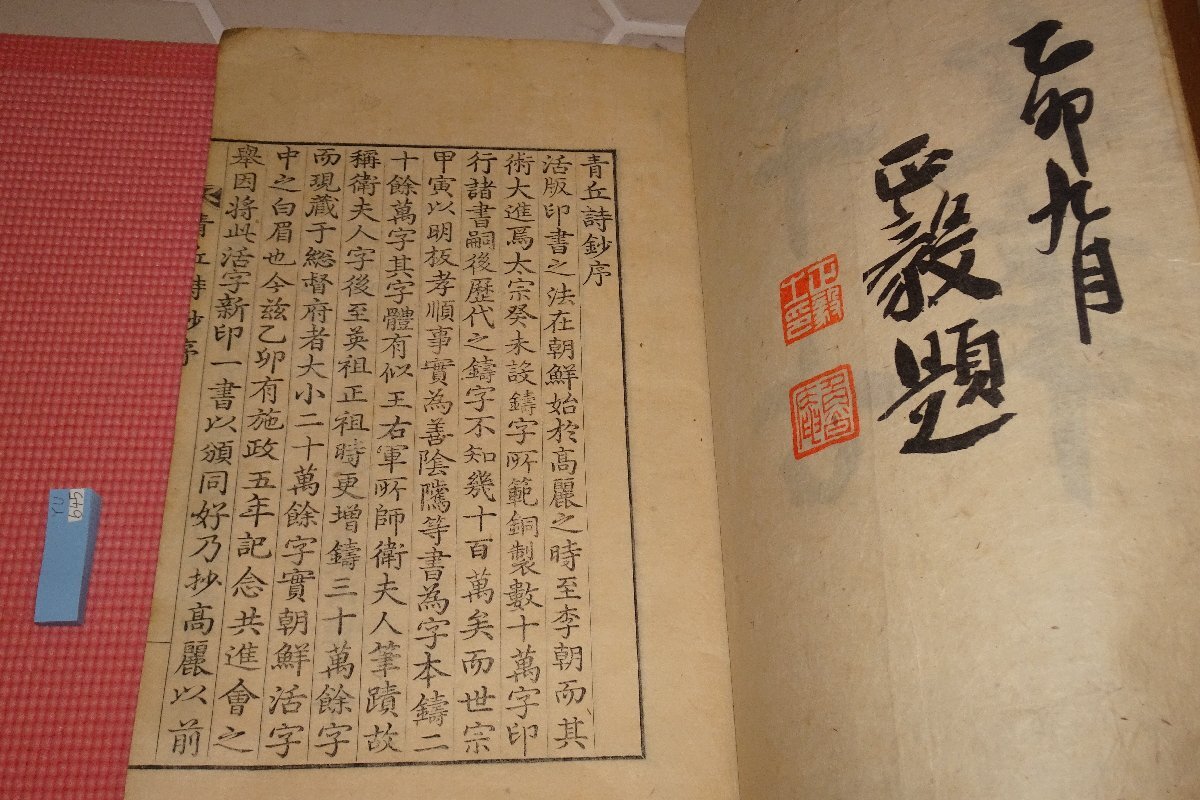 乙卯九月
正毅題
青丘詩鈔序
活版印書之法在朝鮮始於高麗之時至李朝而其
術大進焉太宗癸未設鑄字所範銅製數十萬字印
行諸書嗣後歷代之鑄字不知幾十百萬矣而世宗
甲寅以明板孝順事實為善陰騭等書為字本鑄二
十餘萬字其字體有似王右軍所師衛夫人筆蹟故
稱衛夫人字後至英祖正祖時更增鑄三十萬餘字
而現藏于總督府者大小二十萬餘字實朝鮮活字
中之白眉也今茲乙卯有施政五年記念共進會之
舉因將此活字新印一書以頒同好乃抄高麗以前
青丘詩鈔序